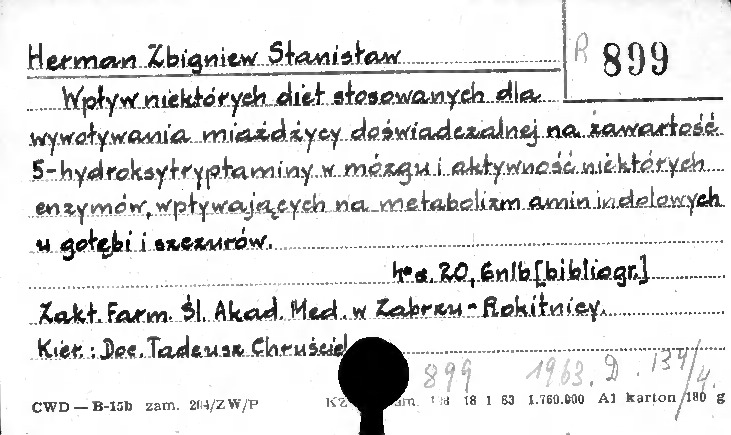 Herman Zbigniew Stanisław
R 899
Wpływ niektórych diet stosowanych dla
wywoływania miażdżycy doświadczalnej na zawartość
5-hydroksytryptaminy w mózgu i aktywność niektórych
enzymów, wpływających na metabolizm amin indolowych
u gołębi i szczurów.
4° s. 20, 6nlb [bibliogr.]
Zakt. Farm. Śl. Akad. Med. w Zabrzu-Rokitnicy.
Kier.: Doc. Tadeusz Chruściel
899 1963. D. 134/4.
CWD — B-15b zam. 204/ZW/P KZ am. 18 1 63 1.760.000 A1 karton 180 g